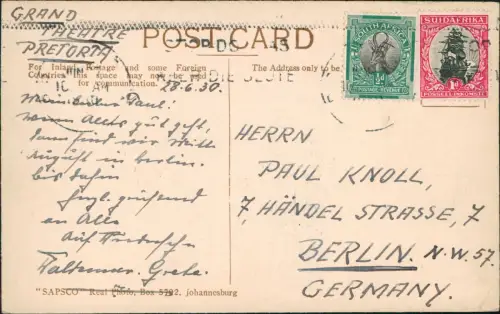 GRAND
THEATRE
PRETORIA
POST CARD
For Inland Postage and some Foreign
Countries this space may now be used
for communication.
The Address only to be
28-6-30.
Mein lieber Paul!
Wenn Alles gut geht,
dann sind wir Mitte
August in Berlin.
bis dahin
herzl. grüssend
an Alle
auf Wiedersehn
Waldemar. Grete.
SOUTH AFRICA
½d
POSTAGE REVENUE
SUIDAFRIKA
1D
POSSEEL INKOMSTE
HERRN
PAUL KNOLL,
7, HÄNDEL STRASSE, 7
BERLIN. N.W. 57.
GERMANY.
"SAPSCO" Real Photo, Box 5792, Johannesburg